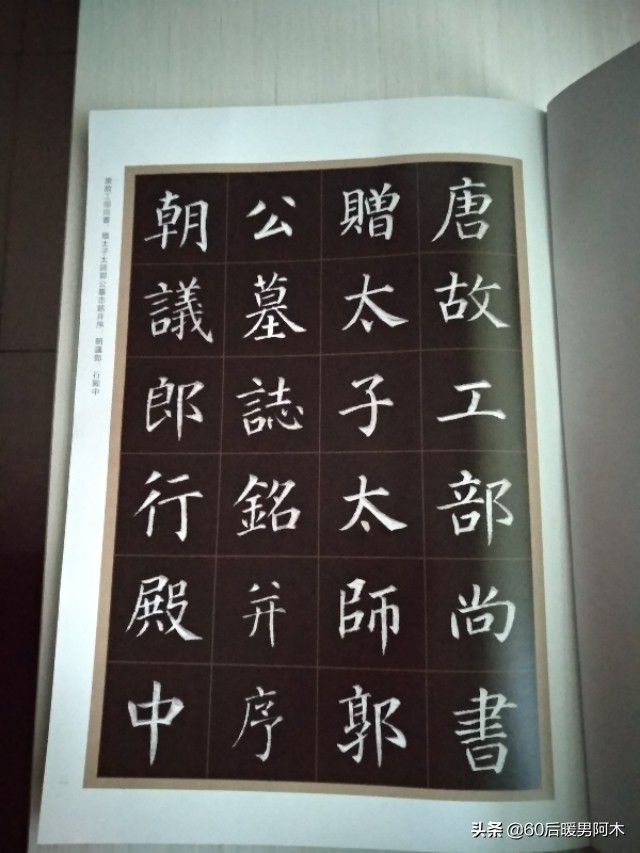 唐故工部尚書
贈太子太師郭
公墓誌銘并序
朝議郎行殿中
唐故工部尚書，赠太子太師郭公墓志銘并序，朝議郎 行殿中
头条 @60后暖男阿木